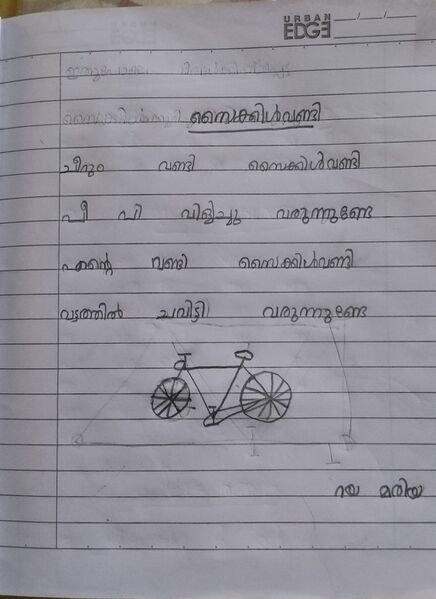 URBAN EDGE
സൈക്കിൾവണ്ടി
ചീറും വണ്ടി സൈക്കിൾവണ്ടി
പീ പി വിളിച്ചു വരുന്നുണ്ടേ
എന്റെ വണ്ടി സൈക്കിൾവണ്ടി
വട്ടത്തിൽ ചവിട്ടി വരുന്നുണ്ടേ
റയ മരിയ